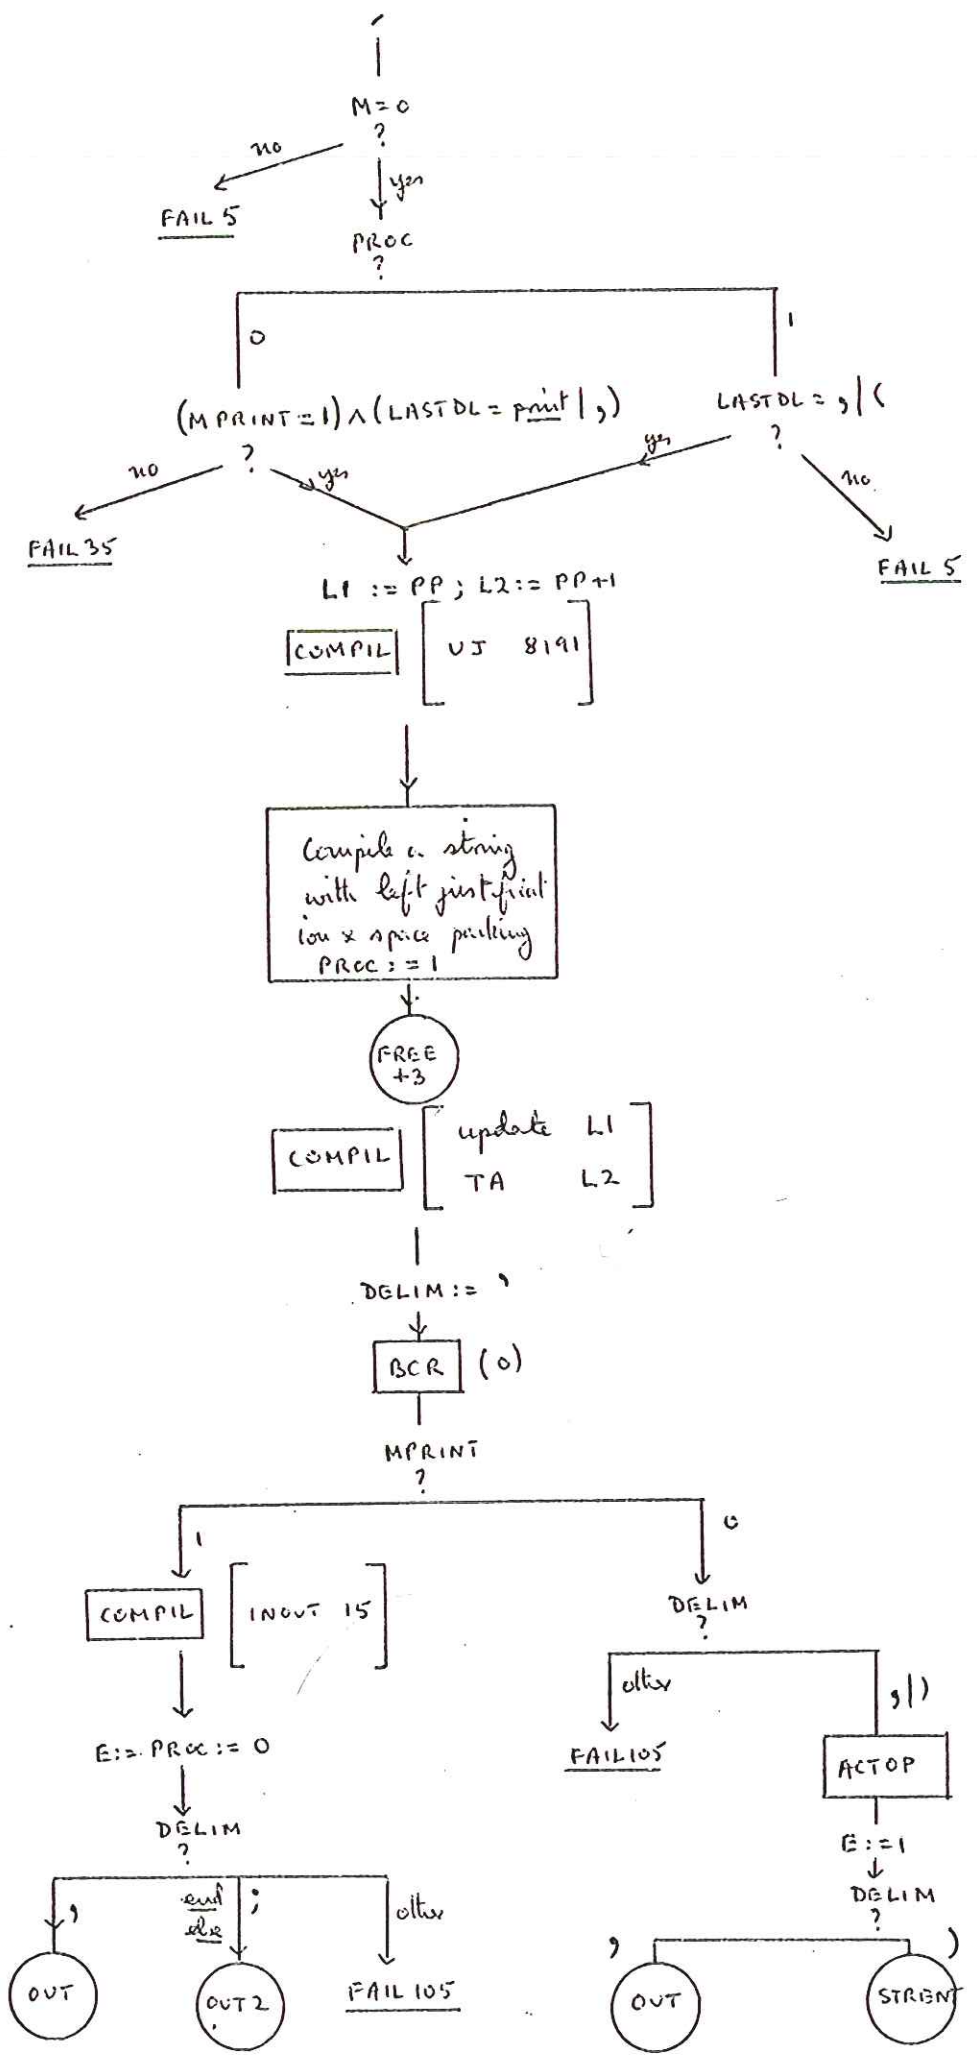 ‘
M=0
?
no
yes
FAIL 5
PROC
?
0
1
(MPRINT=1)∧(LASTDL=print|,)
?
LASTDL=,|(
?
no
yes
yes
no
FAIL 35
FAIL 5
L1 := PP; L2:= PP+1
COMPIL
UJ 8191
Compile a string
with left justificat
ion & space packing
PROC:=1
FREE
+3
COMPIL
update L1
TA L2
DELIM:= ’
BCR (0)
MPRINT
?
1
0
COMPIL
INOUT 15
DELIM
?
other
,|)
E:= PROC:= 0
FAIL105
ACTOP
DELIM
?
E:=1
DELIM
?
,
end
else
;
other
,
)
OUT
OUT2
FAIL 105
OUT
STRENT